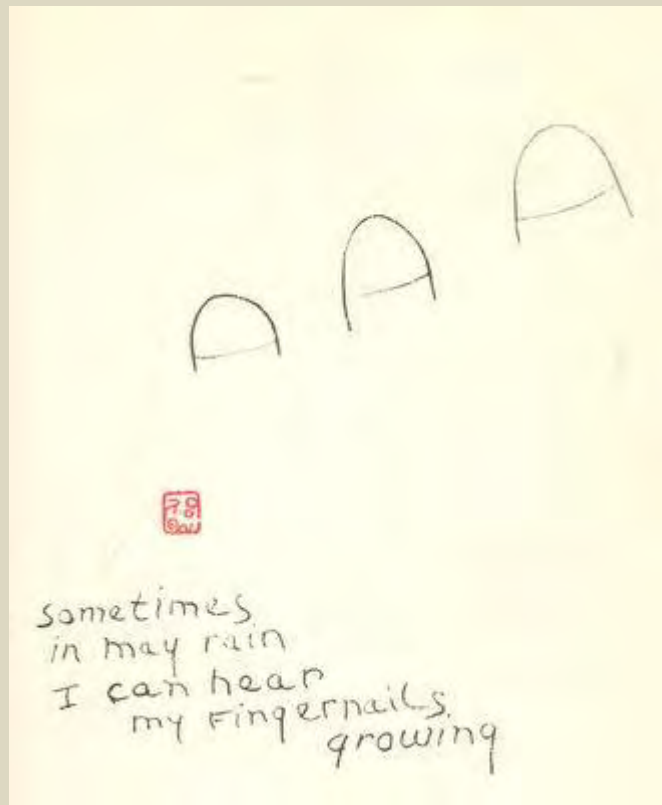 sometimes
in may rain
I can hear
my Fingernails
growing